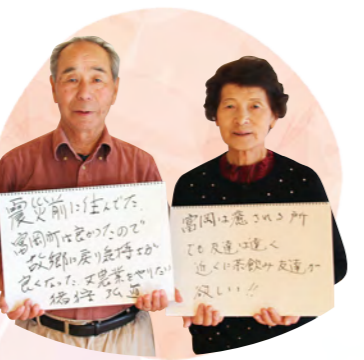 震災前に住んでた。
富岡町は良かったので
故郷に戻り気持ちが
良くなった。又農業をやりたい
弘
富岡は癒される所
でも友達は遠く
近くに茶飲み友達が
欲しい!!